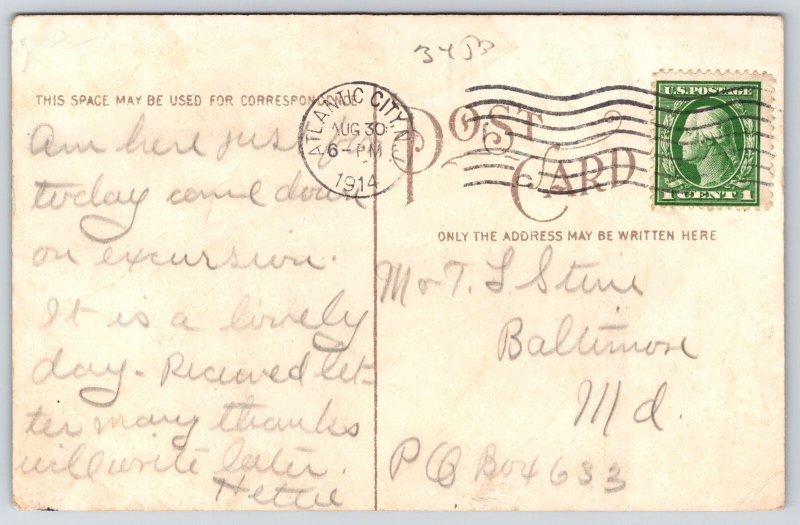 3453
THIS SPACE MAY BE USED FOR CORRESPONDENCE
ATLANTIC CITY, N.J.
AUG 30
6-PM
1914
POST CARD
U.S. POSTAGE
1 CENT 1
ONLY THE ADDRESS MAY BE WRITTEN HERE
Am here just
today came down
on excursion.
It is a lovely
day - Recieved let-
ter many thanks
will write later.
Hettie
Mr T. L Stine
Baltimore
Md.
PO Box 633